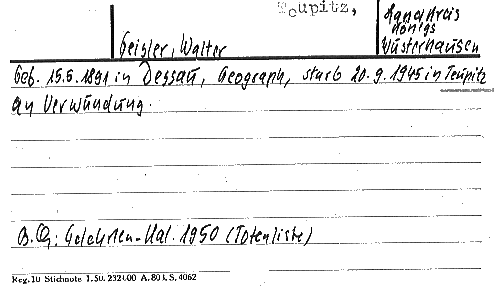 Teupitz,
Landkreis
Königs
Wüsterhausen
Geisler, Walter
Geb. 15.5.1891 in Dessau, Geograph, starb 20.9.1945 in Teupitz
an Verwundung.
B.Q.: Gelehrten-Kal. 1950 (Totenliste)
Reg. 10 Stichnote 1.50. 232400 A. 801. S. 4062